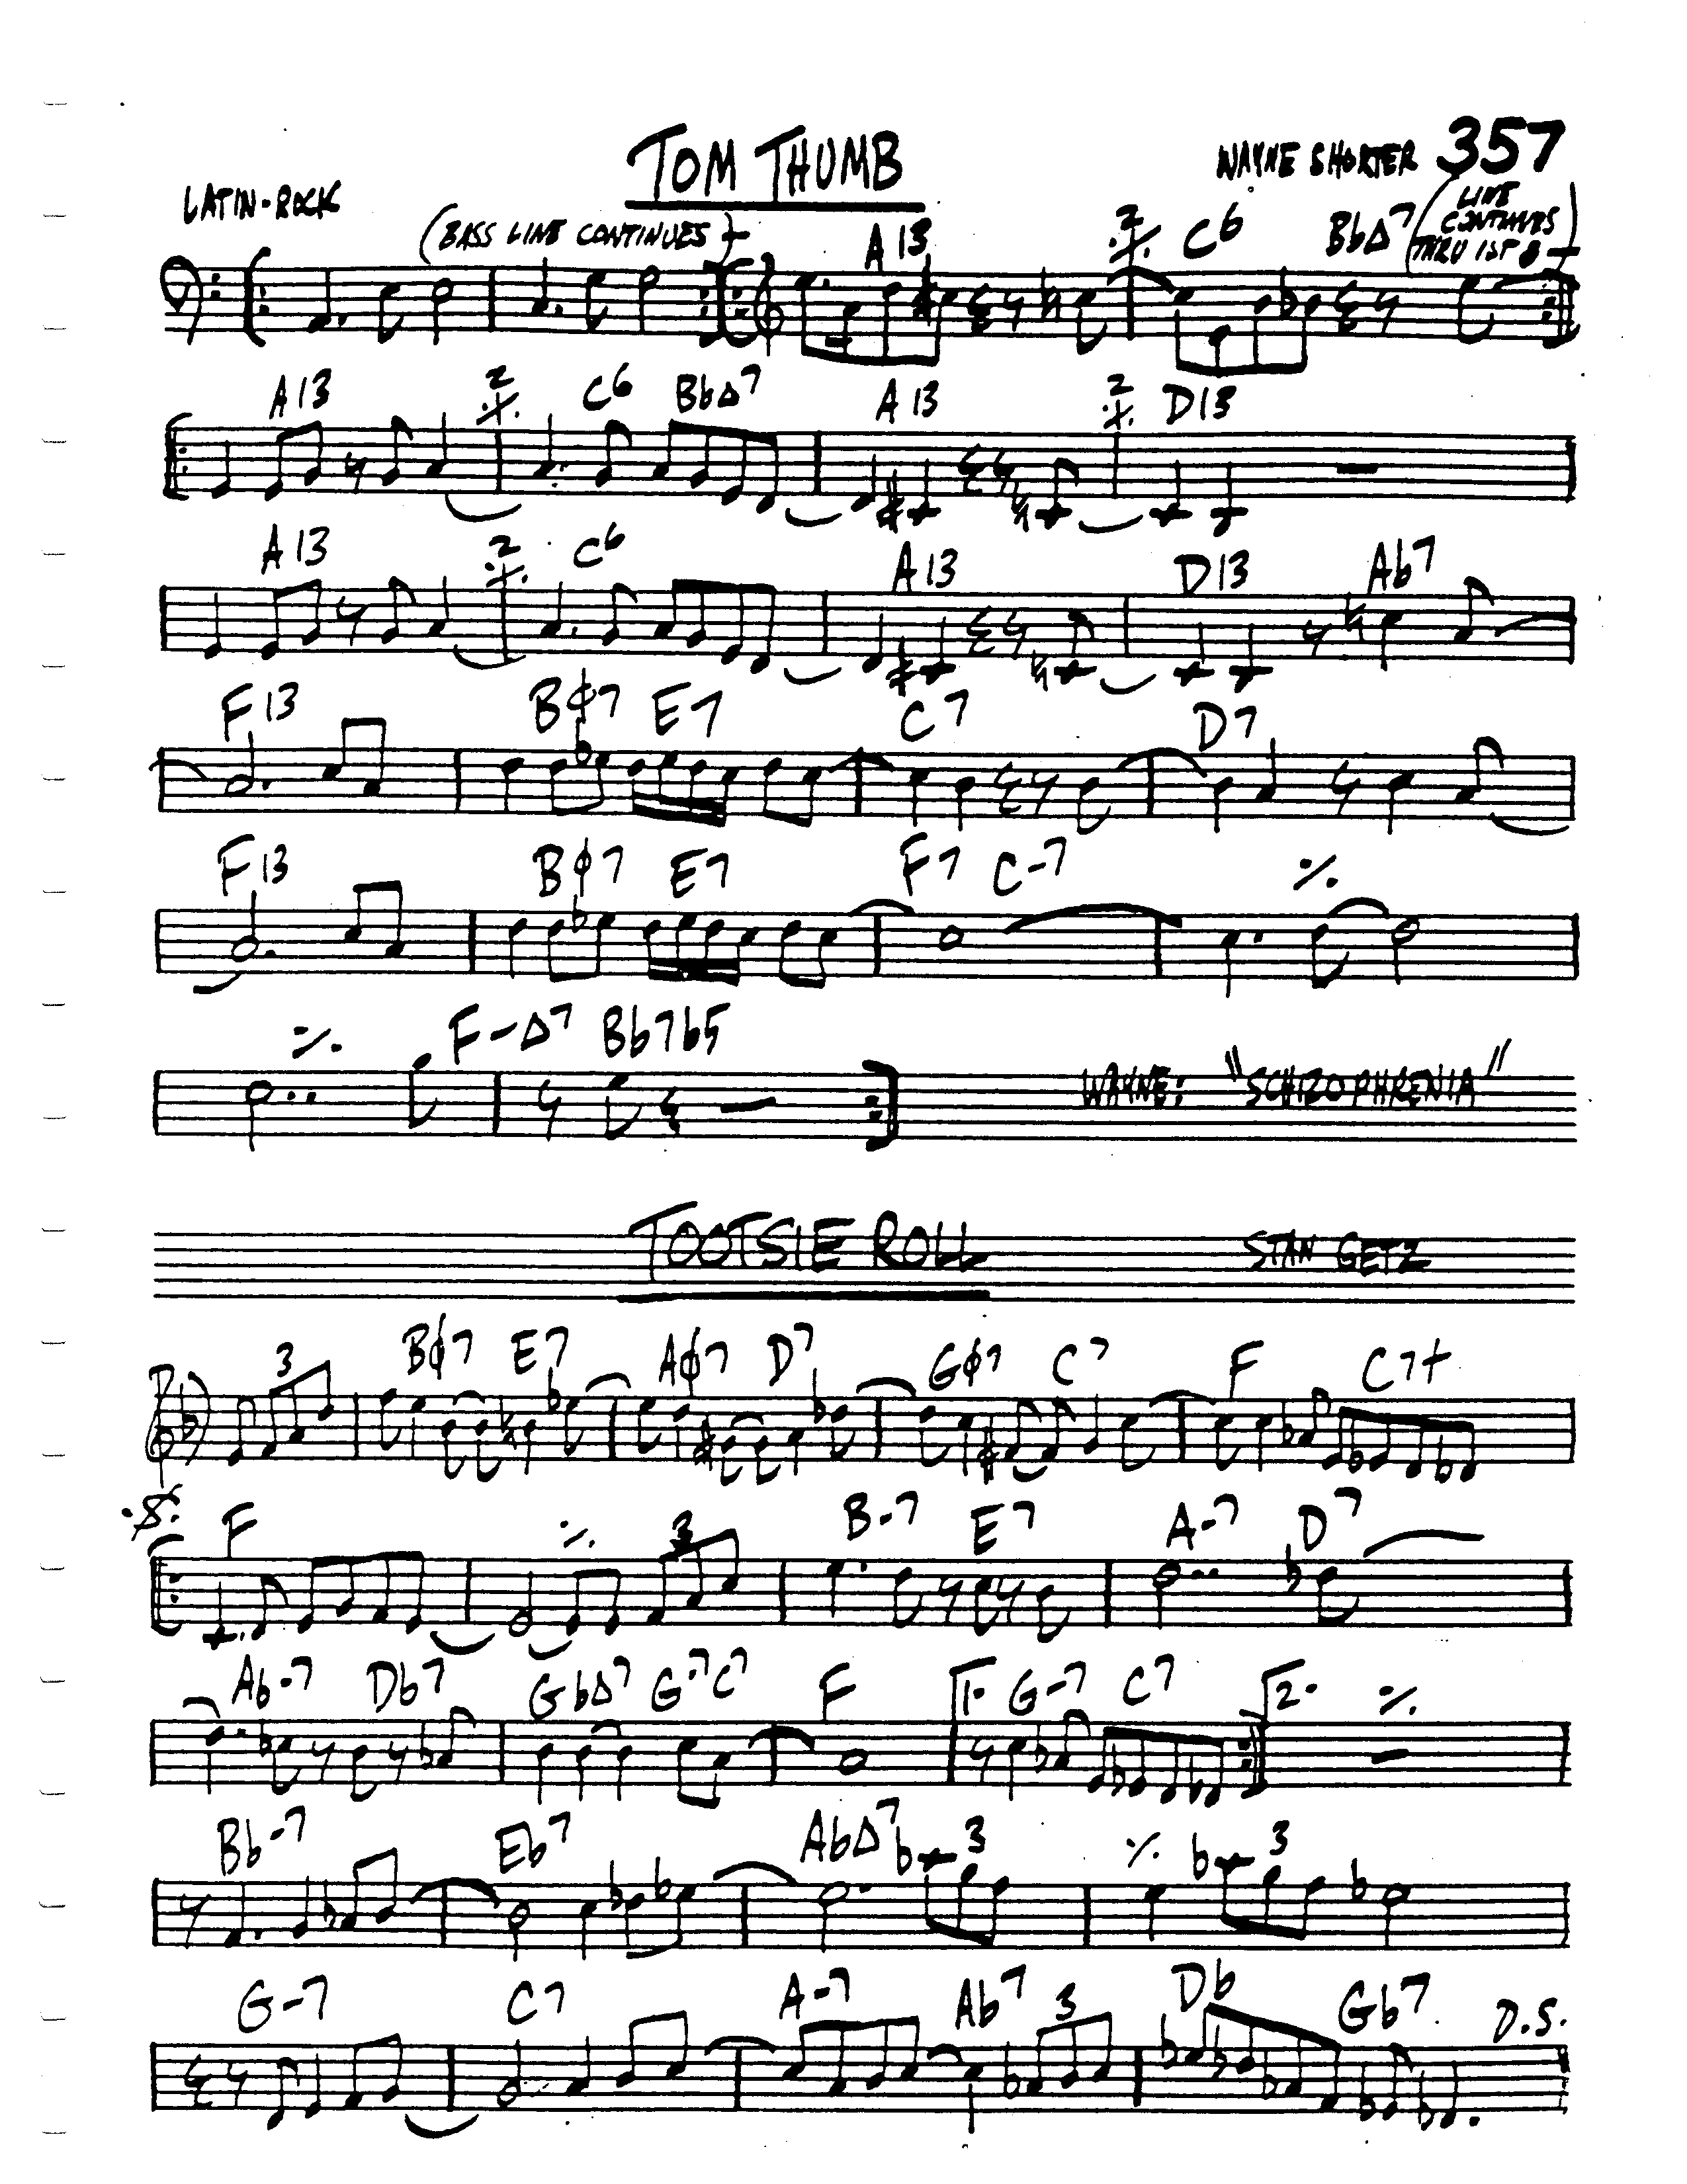 TOM THUMB
WAYNE SHORTER 357
LATIN-ROCK
(BASS LINE CONTINUES)
(LINE CONTINUES THRU 1ST 8)
A13 2 C6 BbΔ7
A13 2 C6 BbΔ7 A13 2 D13
A13 2 C6 A13 D13 Ab7
F13 Bø7 E7 C7 D7
F13 Bø7 E7 F7 C-7
F-Δ7 Bb7b5
WAYNE: "SCHIZOPHRENIA"
TOOTSIE ROLL
STAN GETZ
3 Bø7 E7 Aø7 D7 Gø7 C7 F C7+
F 3 B-7 E7 A-7 D7
Ab-7 Db7 GbΔ7 G-7 C7 F 1. G-7 C7 2.
Bb-7 Eb7 AbΔ7 3 3
G-7 C7 A-7 Ab7 3 Db Gb7 D.S.